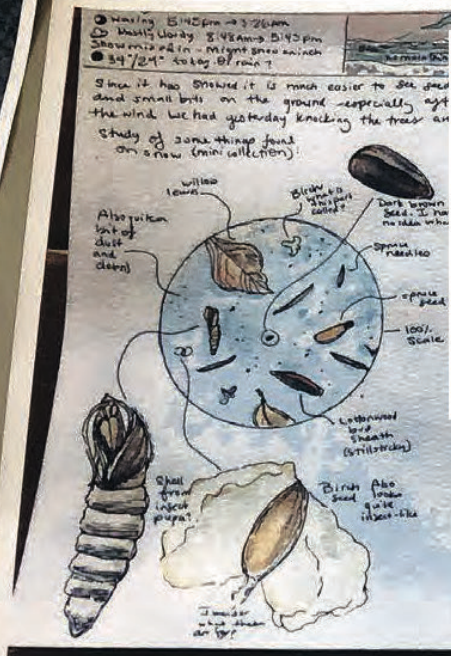 waxing 8:45pm → 3:26am
Mostly cloudy 8:48am → 5:45pm
Snow mixed in - Might snow an inch
34°/24° today or rain?
Since it has snowed it is much easier to see seed
and small bits on the ground especially
the wind we had yesterday knocking the trees an
Study of some things found
on snow (mini collection)!
willow
leaves
Birch
what is
this part
called?
Dark brown
seed. I ha
no idea wha
Also quite a
bit of
dust
and
debris
Spruce
needles
spruce
seed
100%
Scale
Cottonwood
bud
sheath
(still sticky)
Shell
from
insect
pupa?
Birch
seed
Also
looks
quite
insect-like
I wonder
what these
are for?